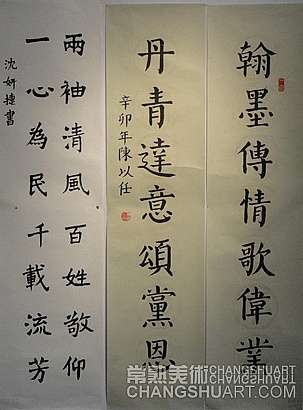 翰墨傳情歌偉業
丹青達意頌黨恩
辛卯年陳以任
兩袖清風百姓敬仰
一心為民千載流芳
沈妍捷書
常熟美術 CHANGSHUART
CHANGSHUART.COM